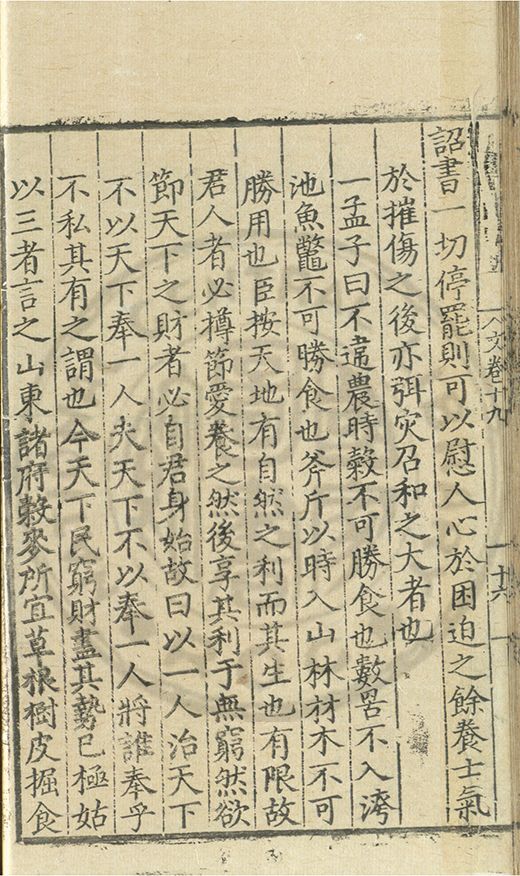 文卷十九
十六
詔書一切停罷則可以慰人心於困迫之餘養士氣
於摧傷之後亦弭灾召和之大者也
一孟子曰不違農時穀不可勝食也數罟不入洿
池魚鼈不可勝食也斧斤以時入山林材木不可
勝用也臣按天地有自然之利而其生也有限故
君人者必撙節愛養之然後享其利于無窮然欲
節天下之財者必自君身始故曰以一人治天下
不以天下奉一人夫天下不以奉一人將誰奉乎
不私其有之謂也今天下民窮財盡其勢已極姑
以三者言之山東諸府穀麥所宜草根樹皮掘食